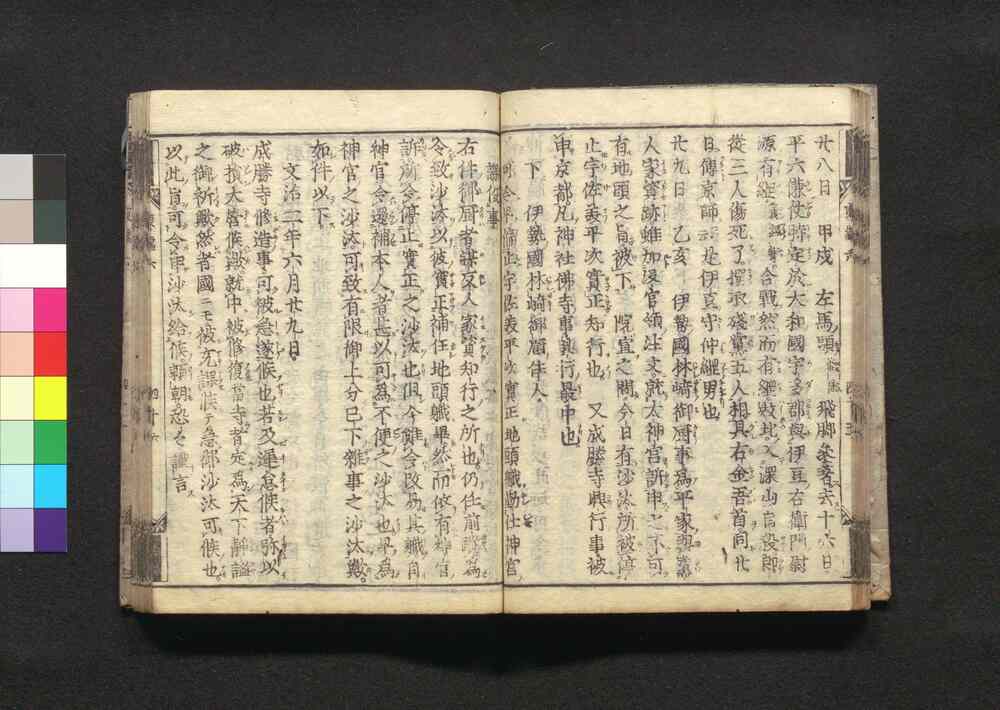 廿八日 甲戌 左馬頭 飛脚参着去十六日
平六傔仗時定於大和國宇多郡與伊豆右衛門尉
源有綱 合戰然而有綱敗北入深山自殺郎
從三人傷死了搦取殘黨五人相具右金吾首同廿
日傳京師 是伊豆守仲綱男也
廿九日 乙亥 伊勢國林崎御厨事為平家與黨
人家資跡雖加没官領注文就太神宮訴申之不可
有地頭之旨被下 院宣之間今日有沙汰所被停
止宇佐美平次實正知行也 又成勝寺興行事被
申京都凡神社佛寺事執行最中也
下 伊勢國林崎御厨住人
可令早停止宇佐美平次實正地頭職勤仕神官
諸役事
右件御厨者謀反人家資知行之所也仍任前蹤為
令致沙汰以彼實正補任地頭職畢然而依有神官
訴所令停止實正之沙汰也但今雖令改易其職自
神官令還補本人者甚以可為不便之沙汰也早為
神官之沙汰可致有限御上分已下雜事之沙汰歟
如件以下
文治二年六月廿九日
成勝寺修造事可被急遂候也若及遲怠候者弥以
破損大營候歟就中被修復當寺者定為天下靜謐
之御祈歟然者國ニモ被充課候テ急御沙汰可候也
以此旨可令申沙汰給候頼朝恐々謹言